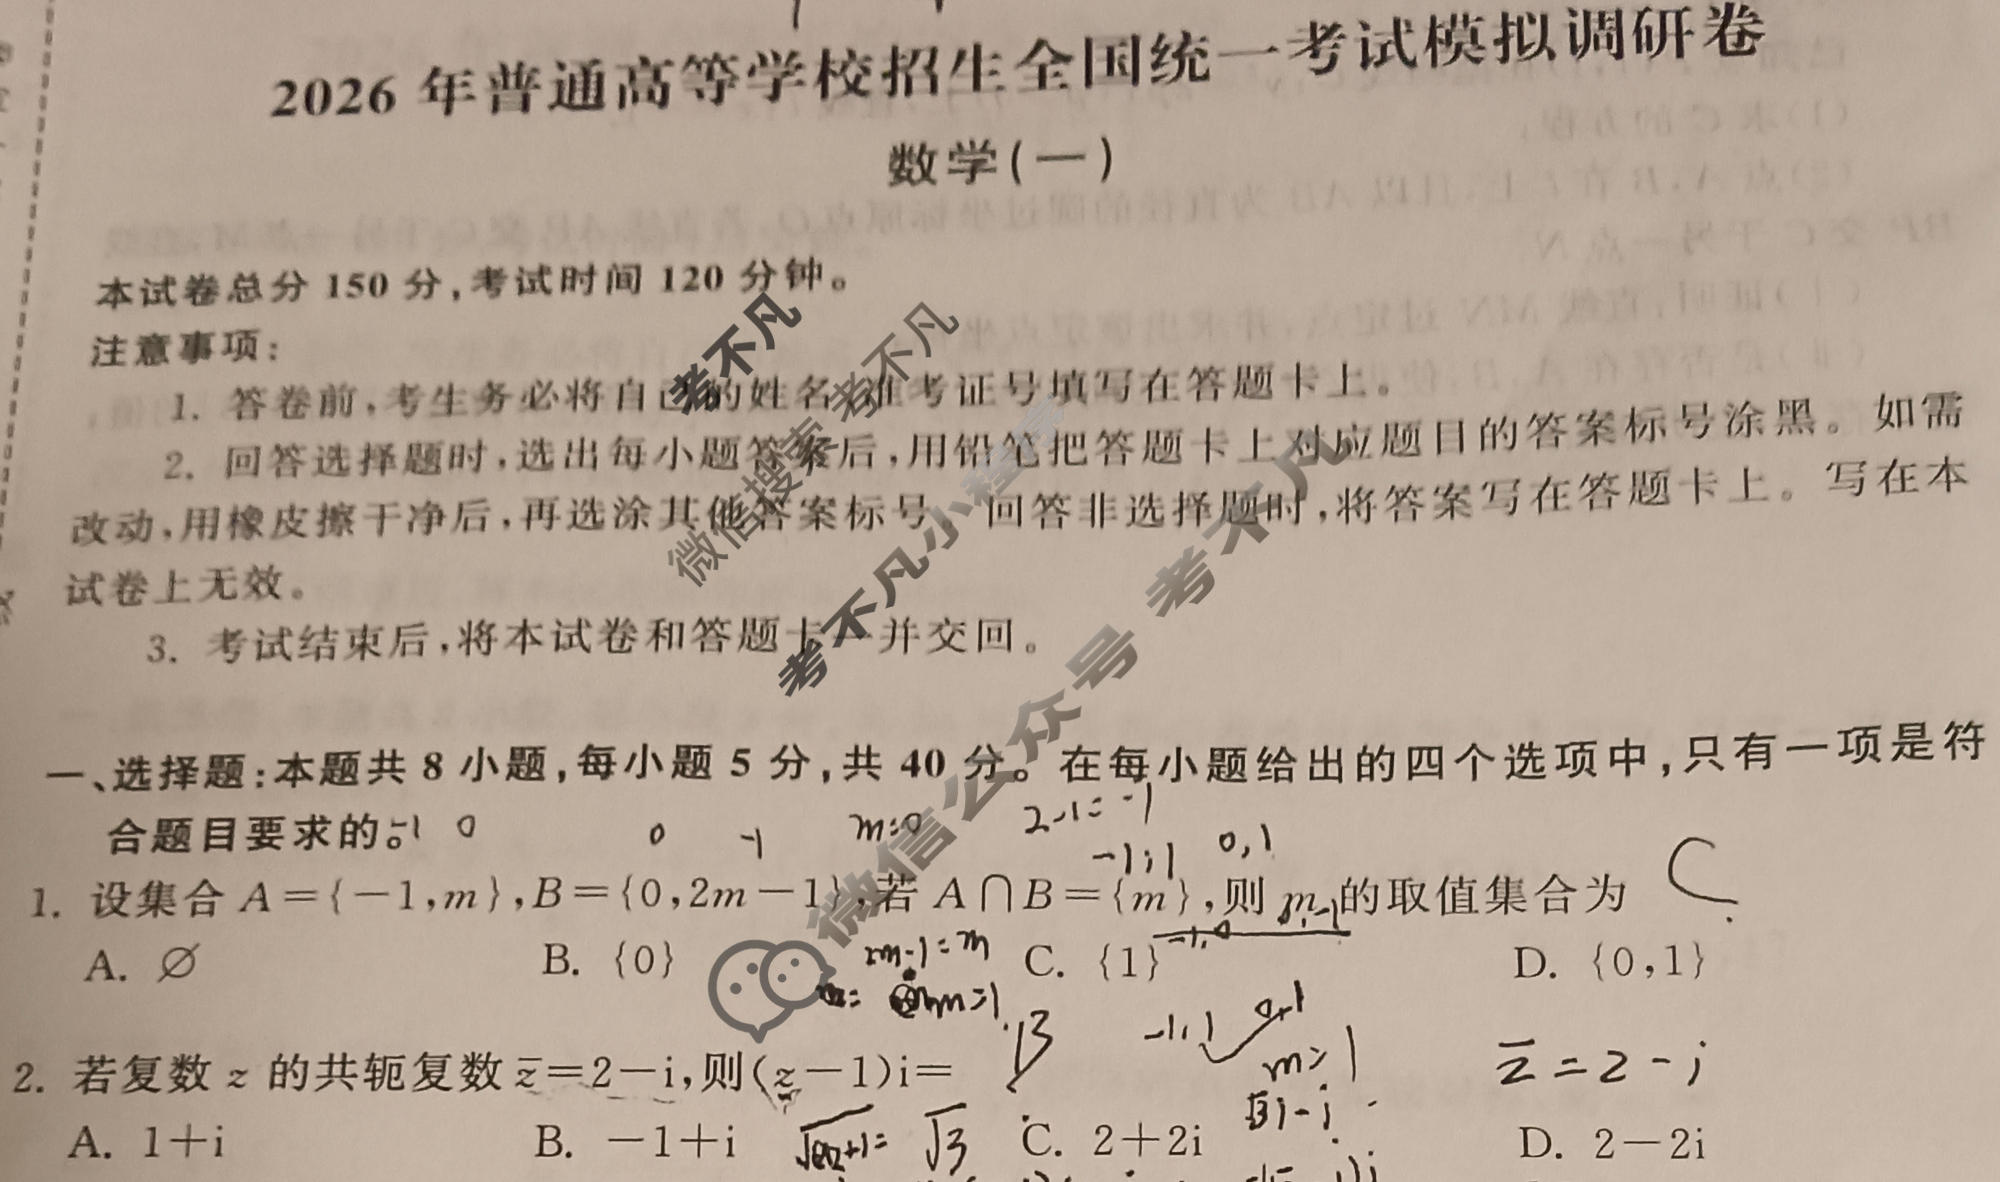 2026 年普通高等学校招生全国统一考试模拟调研卷
数学(一)
本试卷总分 150 分,考试时间 120 分钟。
注意事项:
1. 答卷前,考生务必将自己的姓名、准考证号填写在答题卡上。
2. 回答选择题时,选出每小题答案后,用铅笔把答题卡上对应题目的答案标号涂黑。如需
改动,用橡皮擦干净后,再选涂其他答案标号。回答非选择题时,将答案写在答题卡上。写在本
试卷上无效。
3. 考试结束后,将本试卷和答题卡一并交回。
考不凡
微信搜索 考不凡
考不凡小程序
微信公众号 考不凡
一、选择题:本题共 8 小题,每小题 5 分,共 40 分。在每小题给出的四个选项中,只有一项是符
合题目要求的。
-1 0
0 -1
m=0
2-1=-1
-1,1 0,1
1. 设集合 A={-1,m},B={0,2m-1},若 A∩B={m},则 m 的取值集合为
C
A. ∅ B. {0} C. {1} D. {0,1}
2m-1=m
m=1
-1,1 0,1
m=1
2. 若复数 z 的共轭复数 z̅=2-i,则(z-1)i=
B
z̅=2-i
A. 1+i B. -1+i C. 2+2i D. 2-2i
√3